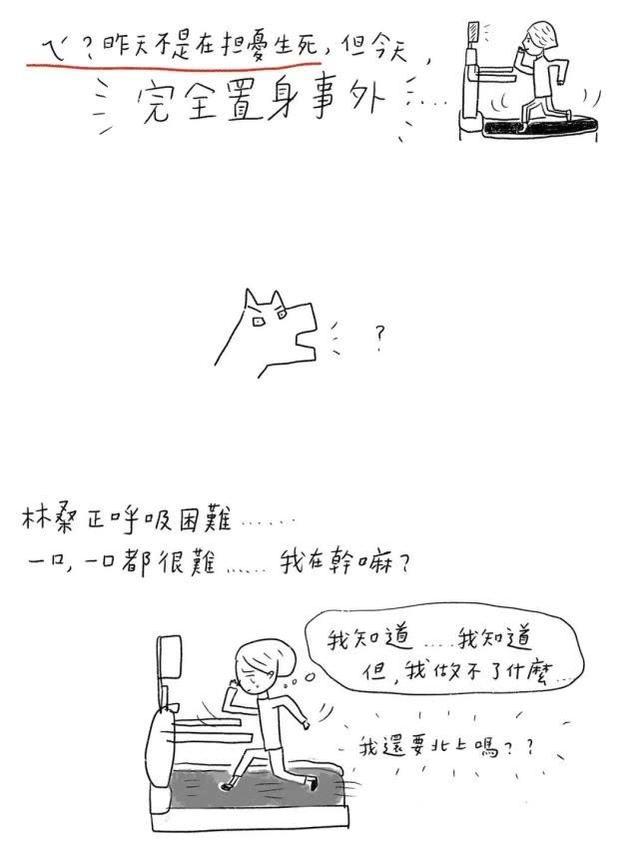 ㄟ？昨天不是在担憂生死，但今天，
完全置身事外....
？
林桑正呼吸困難......
一口，一口都很難...... 我在幹嘛？
我知道....我知道
但，我做不了什麼...
我還要北上嗎？？